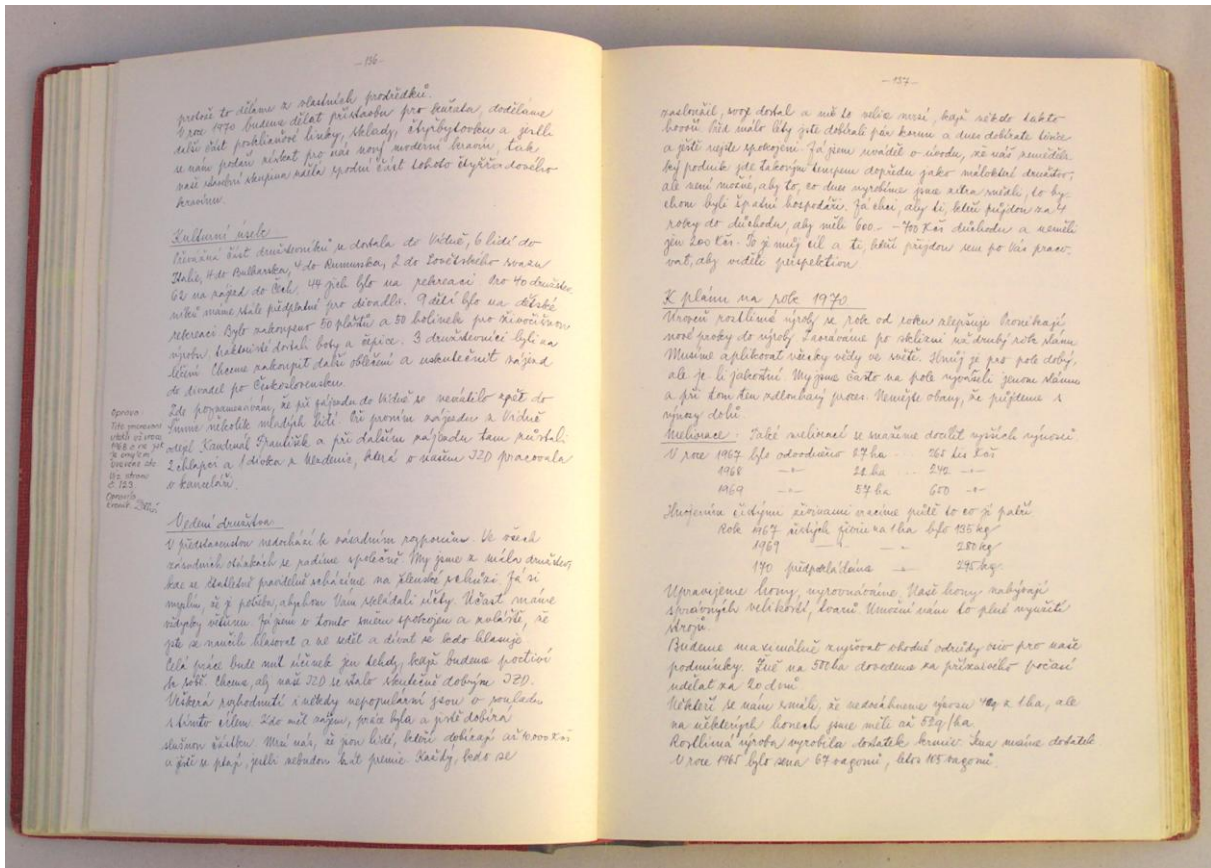 -136-
protože to děláme z vlastních prostředků.
V roce 1970 budeme dělat přístavbu pro kuřata, doděláme
další část posklizňové linky, sklady, čtyřbytovku a jestli
se nám podaří získat pro nás nový moderní kravín, tak
naše stavební skupina udělá spodní část tohoto čtyřřadového
kravína.
Kulturní úsek
část družstevníků se dostala do Vídně, 6 lidí do
Itálie, 4 do Bulharska, 4 do Rumunska, 2 do Sovětského svazu
62 na zájezd do Čech. 44 jich bylo na rekreaci. Pro 40 družstev-
níků máme stálé předplatné pro divadlo. 9 dětí bylo na dětské
rekreaci. Bylo zakoupeno 50 plášťů a 50 holinek pro živočišnou
výrobu, traktoristé dostali boty a čepice. 3 družstevníci byli na
léčení. Chceme zakoupit další oblečení a uskutečnit zájezd
do divadel po Československu.
Zde poznamenávám, že při zájezdu do Vídně se nevrátilo zpět do
několik mladých lidí. Při prvním zájezdu z Vídně
František a při dalším zájezdu tam zůstali
2 chlapci a 1 dívka z která v našem JZD pracovala
v kanceláři.
Oprava:
Tito
utekli už v roce
1968 a ne jak
je omylem
uvedeno zde
Viz strana
č. 123.
Opravil
kronik.
Vedení družstva
V představenstvu nedochází k zásadním rozporům. Ve všech
zásadních otázkách se radíme společně. My jsme z mála družstev,
kde se čtvrtletně pravidelně scházíme na členské schůzi. Já si
myslím, že je potřeba, abychom Vám skládali účty. Účast máme
vždycky většinu. Já jsem v tomto směru spokojen a zvláště, že
jste se naučili hlasovat a ne sedět a dívat se kdo hlasuje.
Celá práce bude mít účinek jen tehdy, když budeme poctiví
k sobě. Chceme, aby naše JZD se stalo skutečně dobrým JZD.
Veškerá rozhodnutí i někdy nepopulární jsou v souladu
s tímto cílem. Kdo měl zájem, práce byla a ještě dobírá
slušnou částku. Mrzí nás, že jsou lidé, kteří dobírají až Kčs
a ještě se ptají, jestli nebudou brát premie. Každý, kdo se
-137-
zasloužil, svoje dostal a mě to velice mrzí, když někdo takto
hovoří. Před málo léty jste dobírali pár korun a dnes dobíráte tisíce
a ještě nejste spokojeni. Já jsem uváděl v úvodu, že náš zeměděl-
ský podnik jde takovým tempem dopředu jako málokteré družstvo,
ale není možné, aby to, co dnes vyrobíme jsme zítra snědli, to by-
chom byli špatní hospodáři. Já chci, aby ti, kteří půjdou za 4
roky do důchodu, aby měli 600.- -700 Kčs důchodu a neměli
jen 200 Kčs. To je můj cíl a ti, kteří přijdou sem po Vás praco-
vat, aby viděli perspektivu
K plánu na rok 1970
rostlinné výroby se rok od roku zlepšuje. Pronikají
nové prvky do výroby. Zaoráváme po sklizni na druhý rok slámu
Musíme aplikovat všecky vědy ve světě. Hnůj je pro pole dobrý,
ale je-li jakostní. My jsme často na pole vyváželi jenom slámu
a při tom ten zdlouhavý proces. Nemějte obavy, že půjdeme s
výnosy dolů.
Meliorace: Také meliorací se snažíme docílit vyšších výnosů.
V roce 1967 bylo odvodněno 27 ha ... 265 tis Kčs
1968 -"- 21 ha ... 242 -"-
1969 -"- 57 ha 650 -"-
Hnojením čistými živinami vracíme půdě to co jí patří.
Rok 1967 čistých živin na 1 ha bylo 135 kg
1969 -"- -"- 280 kg
170 předpokládáme -"- 295 kg.
Upravujeme hony, vyrovnáváme. Naše hony nabývají
správných velikostí, tvarů. Umožní nám to plné využití
strojů.
Budeme maximálně zvyšovat vhodné odrůdy osiv pro naše
podmínky. Žně na 500 ha dovedeme za příznivého počasí
udělat za 20 dnů
Někteří se nám smáli, že nedosáhneme výnosu 40q z 1 ha, ale
na některých honech jsme měli až 52q/ha.
Rostlinná výroba vyrobila dostatek krmiv. Sena máme dostatek
V roce 1965 bylo sena 67 vagonů, letos 105 vagonů.